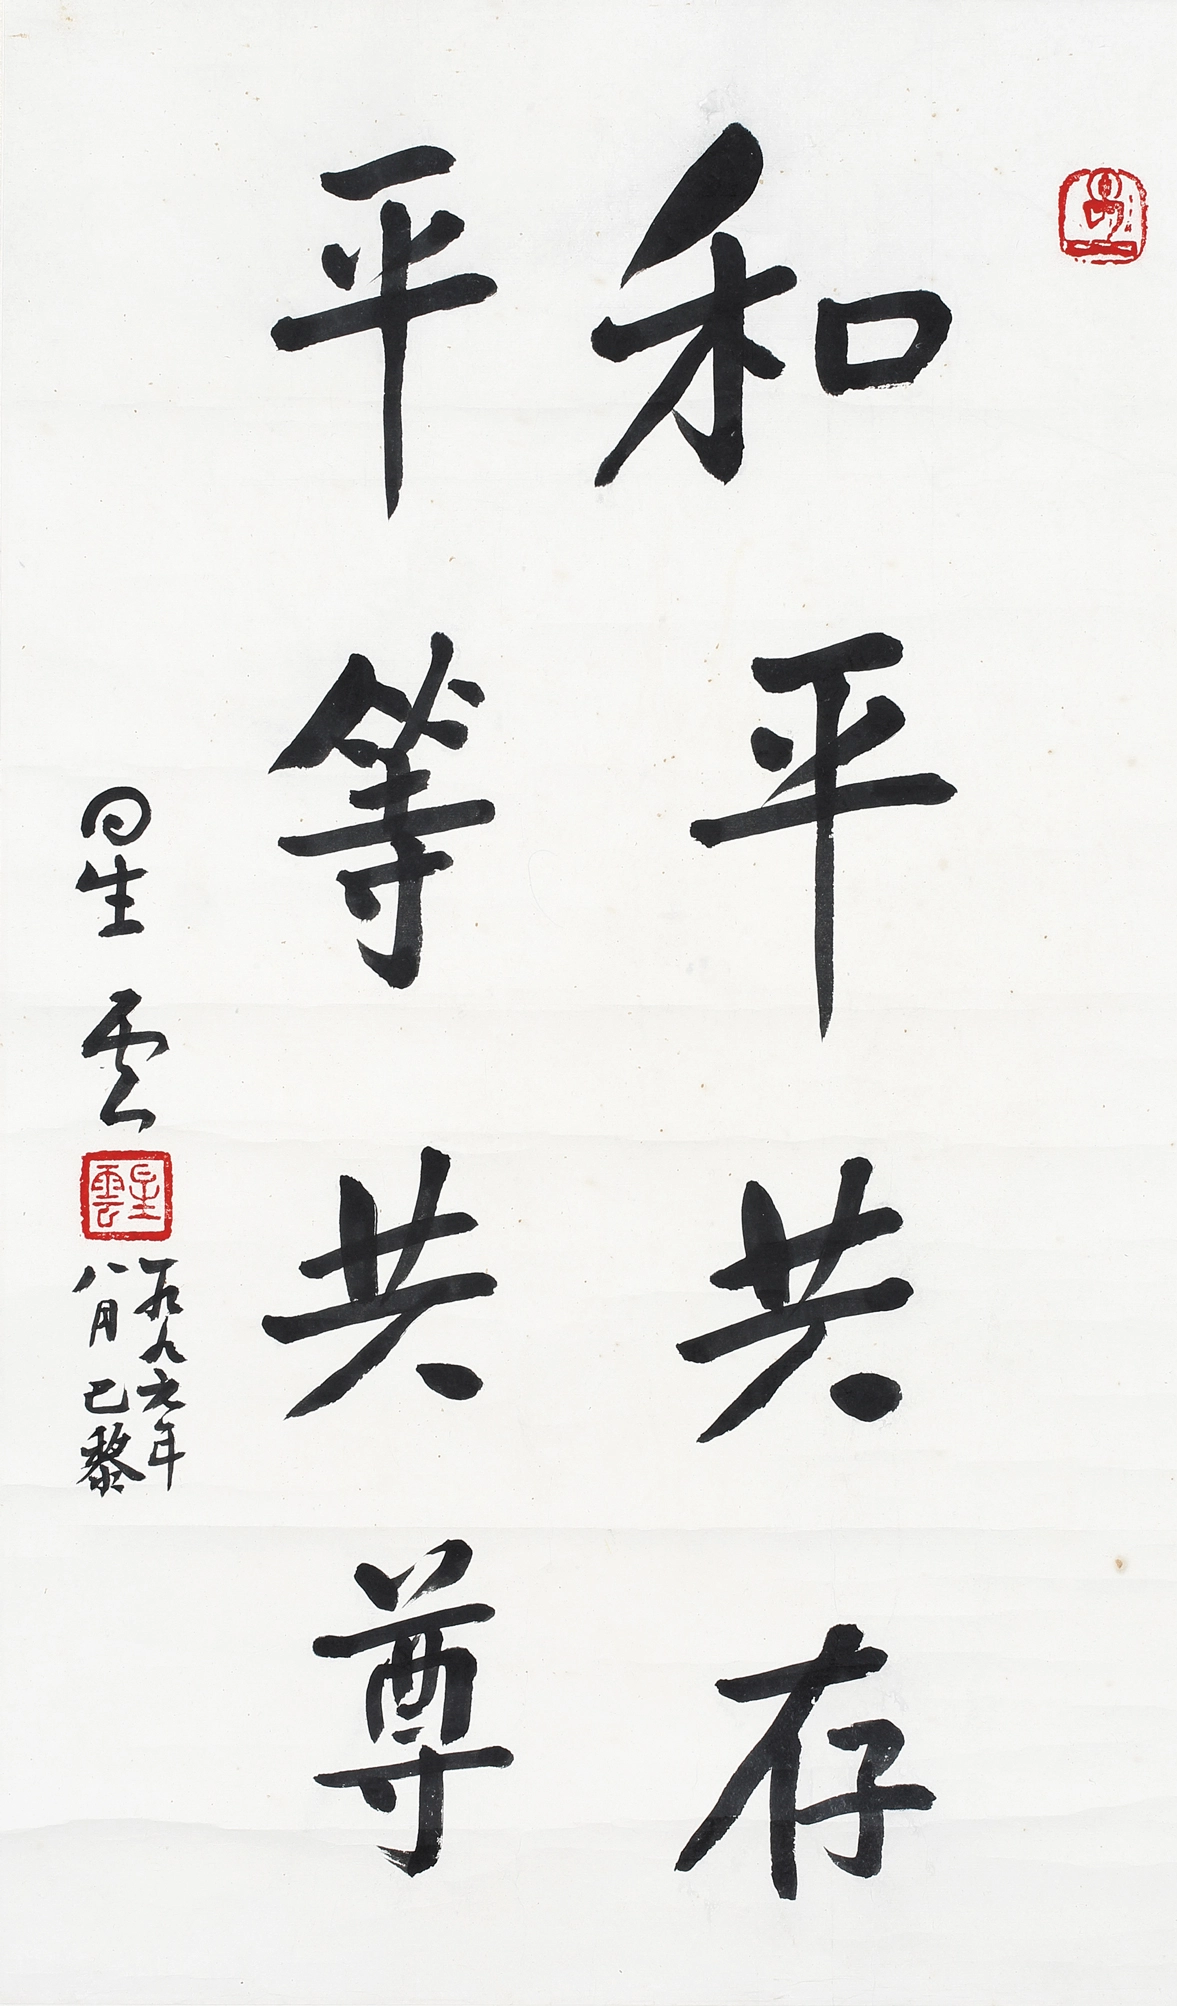 和平共存
平等共尊
星云
星雲
一九九六年
八月巴黎